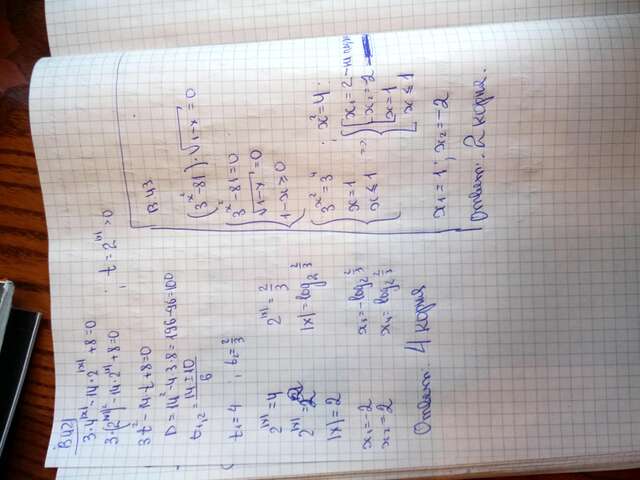 В42
3·4^|x| - 14·2^|x| + 8 = 0
3·(2^|x|)² - 14·2^|x| + 8 = 0 ; t = 2^|x| > 0
3t² - 14t + 8 = 0
D = 14² - 4·3·8 = 196 - 96 = 100
t₁,₂ = 14 ± 10 / 6
t₁ = 4 ; t₂ = 2/3
2^|x| = 4 2^|x| = 2/3
2^|x| = 2² |x| = log₂ 2/3
|x| = 2
x₁ = -2 x₃ = -log₂ 2/3
x₂ = 2 x₄ = log₂ 2/3
Ответ: 4 корня
В43
(3^x² - 81)·√1-x = 0
3^x² - 81 = 0
√1-x = 0
1 - x ≥ 0
3^x² = 3⁴ ; x² = 4
x = 1 => x₁ = 2
x ≤ 1 x₂ = -2
x = 1
x ≤ 1
x₁ = 1 ; x₂ = -2
Ответ: 2 корня.